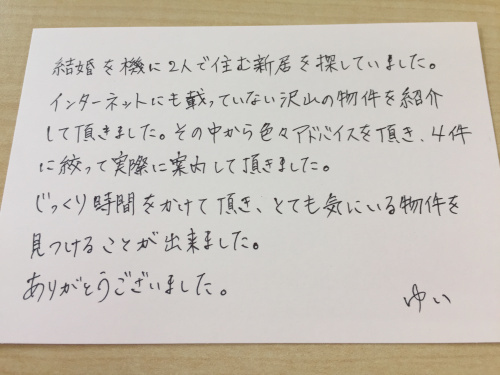 結婚を機に2人で住む新居を探していました。
インターネットにも載っていない沢山の物件を紹介
して頂きました。その中から色々アドバイスを頂き、4件
に絞って実際に案内して頂きました。
じっくり時間をかけて頂き、とても気にいる物件を
見つけることが出来ました。
ありがとうございました。
ゆい